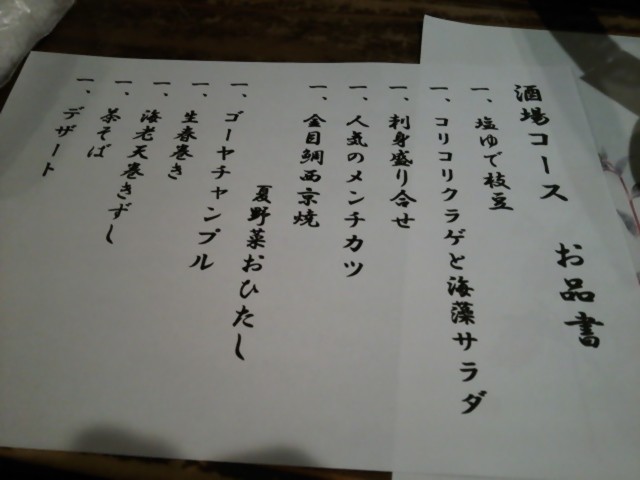 酒場コース　お品書
一、塩ゆで枝豆
一、コリコリクラゲと海藻サラダ
一、刺身盛り合せ
一、人気のメンチカツ
一、金目鯛西京焼
夏野菜おひたし
一、ゴーヤチャンプル
一、生春巻き
一、海老天巻きずし
一、茶そば
一、デザート